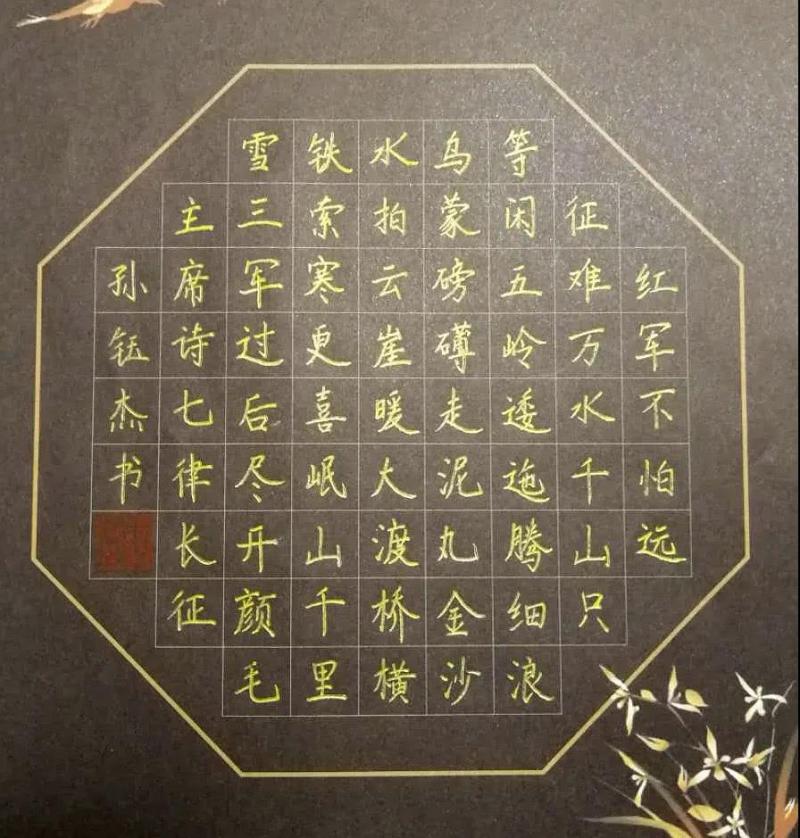 红军不怕远
征难万水千山只
等闲五岭逶迤腾细浪
乌蒙磅礴走泥丸金沙
水拍云崖暖大渡桥横
铁索寒更喜岷山千里
雪三军过后尽开颜毛
主席诗七律长征
孙钰杰书